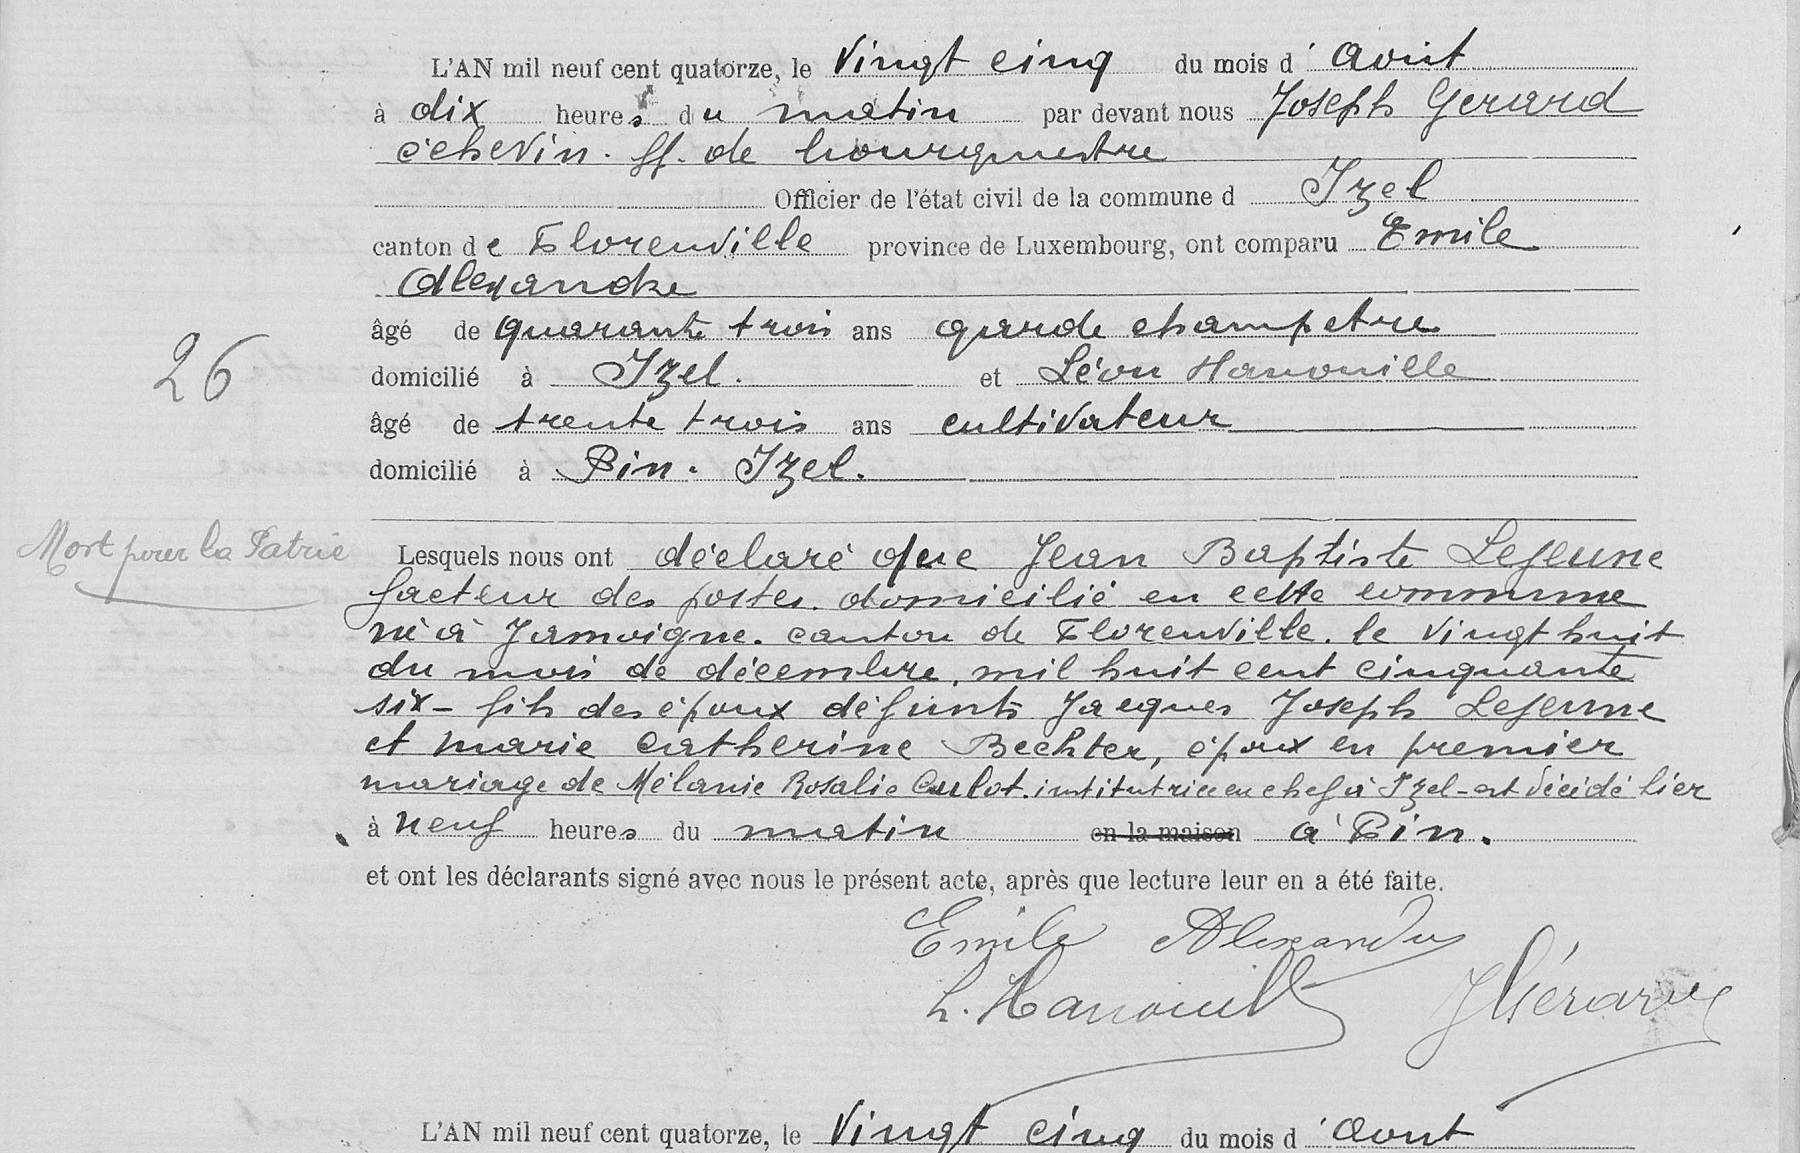 L'AN mil neuf cent quatorze, le vingt cinq du mois d'Août
à dix heures du matin par devant nous Joseph Gerard
échevin. ff. de bourgmestre
Officier de l'état civil de la commune d Izel
canton de Florenville province de Luxembourg, ont comparu Emile
Alexandre
âgé de quarante trois ans garde champetre
26
domicilié à Izel. et Léon Hanouille
âgé de trente trois ans cultivateur
domicilié à Pin. Izel.
Mort pour la Patrie
Lesquels nous ont déclaré que Jean Baptiste Lejeune
facteur des postes. domicilié en cette commune
né à Jamoigne. canton de Florenville. le vingt huit
du mois de décembre, mil huit cent cinquante
six - fils des époux défunts Jacques Joseph Lejeune
et marie catherine Bechter, époux en premier
mariage de Mélanie Rosalie Culot. institutrice en chef à Izel - est décédé hier
à neuf heures du matin en la maison à Pin.
et ont les déclarants signé avec nous le présent acte, après que lecture leur en a été faite.
Emile Alexandre
L. Hanouille JGérard
L'AN mil neuf cent quatorze, le vingt cinq du mois d'Août